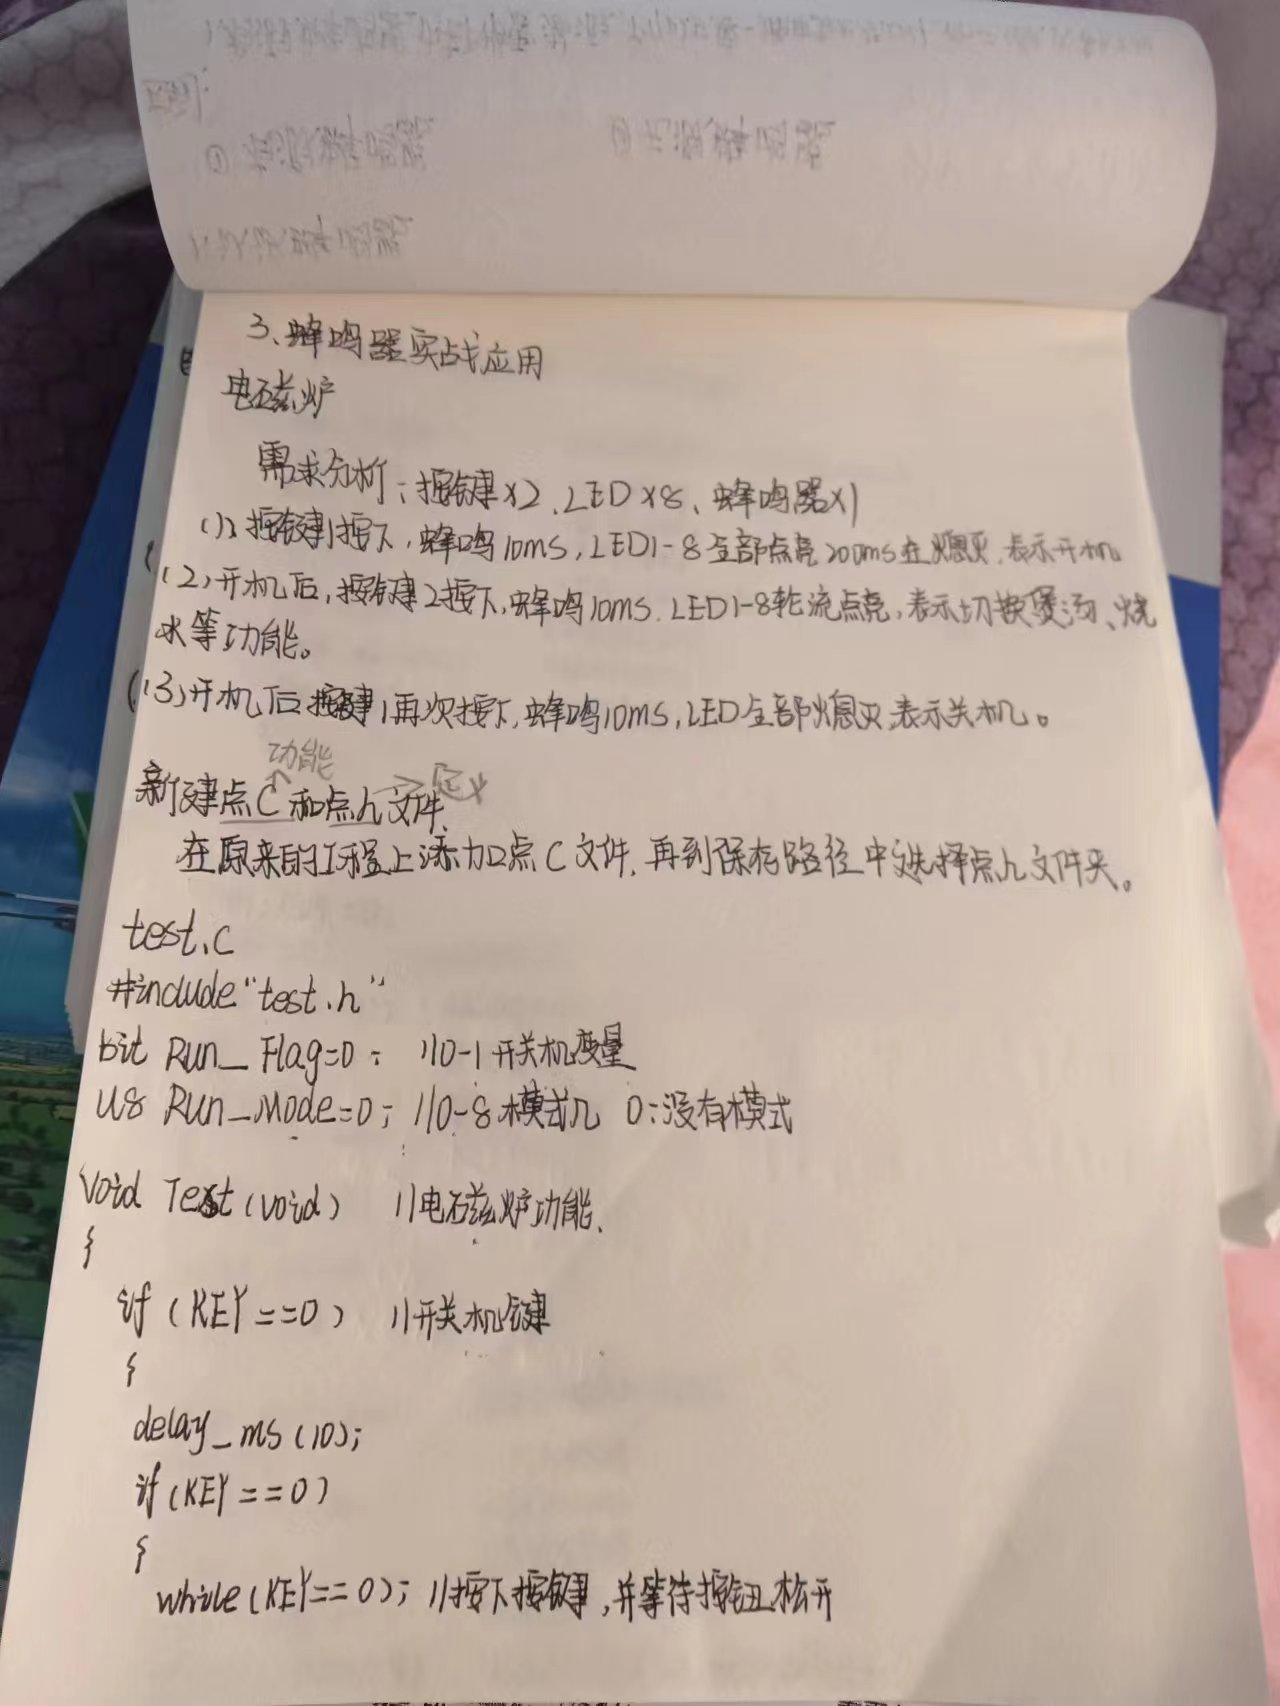 3、蜂鸣器实战应用
电磁炉
需求分析：按键x2、LEDx8、蜂鸣器x1
(1)、按键1按下，蜂鸣10ms，LED1-8全部点亮200ms在熄灭，表示开机
(2)开机后，按键2按下，蜂鸣10ms. LED1-8轮流点亮，表示切换煲汤、烧
水等功能。
(3)开机后按键1再次按下，蜂鸣10ms，LED全部熄灭，表示关机。
功能
新建点C和点h文件. → 定义
在原来的工程上添加点C文件，再到保存路径中选择点h文件夹。
test.c
#include "test.h"
bit Run_Flag=0; //0-1开关机变量
u8 Run_Mode=0; //0-8模式几 0:没有模式
void Test(void) //电磁炉功能.
{
if (KEY==0) //开关机键
{
delay_ms(10);
if(KEY==0)
{
while(KEY==0); //按下按键，并等待按钮松开